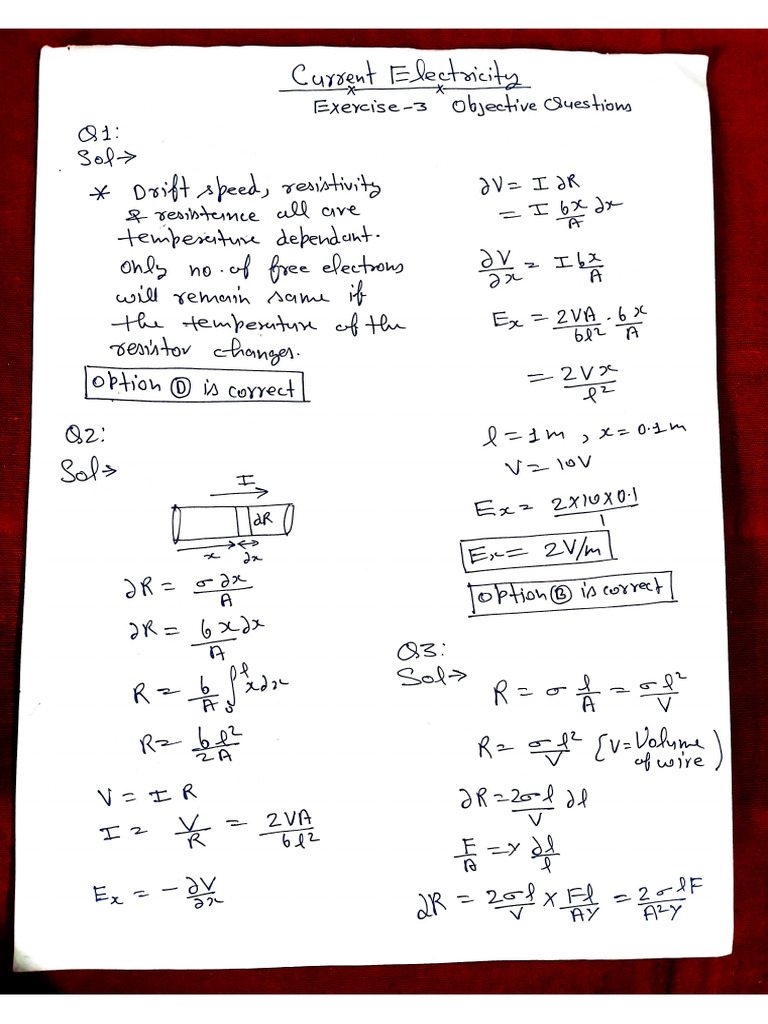 Current Electricity
Exercise-3 Objective Questions
Q1:
Sol→
* Drift speed, resistivity
& resistance all are
temperature dependant.
only no. of free electrons
will remain same if
the temperature of the
resistor changes.
Option Ⓓ is correct
Q2:
Sol→
I
∂R
x ∂x
∂R = σ∂x/A
∂R = bx∂x/A
R = b/A ∫₀^l x∂x
R = bl²/2A
V = IR
I = V/R = 2VA/bl²
Ex = -∂V/∂x
∂V = I ∂R
= I bx/A ∂x
∂V/∂x = I bx/A
Ex = 2VA/bl² · bx/A
= 2Vx/l²
l = 1m, x = 0.1m
V = 10V
Ex = 2×10×0.1/1
Ex = 2V/m
Option Ⓑ is correct
Q3:
Sol→
R = σ l/A = σl²/V
R = σl²/V [V = Volume
of wire)
∂R = 2σl/V ∂l
F/A = Y ∂l/l
∂R = 2σl/V × Fl/AY = 2σlF/A²Y